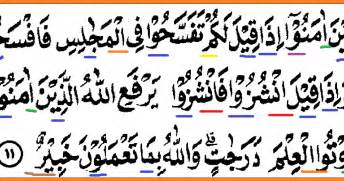 يْنَ اٰمَنُوْٓا اِذَا قِيْلَ لَكُمْ تَفَسَّحُوْا فِى الْمَجٰلِسِ فَافْسَحُ
وَاِذَا قِيْلَ انْشُزُوْا فَانْشُزُوْا يَرْفَعِ اللّٰهُ الَّذِيْنَ اٰمَنُوْا
وْتُوا الْعِلْمَ دَرَجٰتٍۗ وَاللّٰهُ بِمَا تَعْمَلُوْنَ خَبِيْرٌ ١١